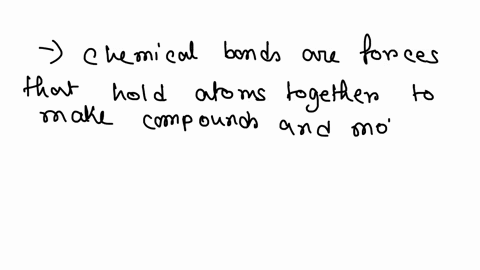 → chemical bonds are forces
that hold atoms together to
make compounds and mo